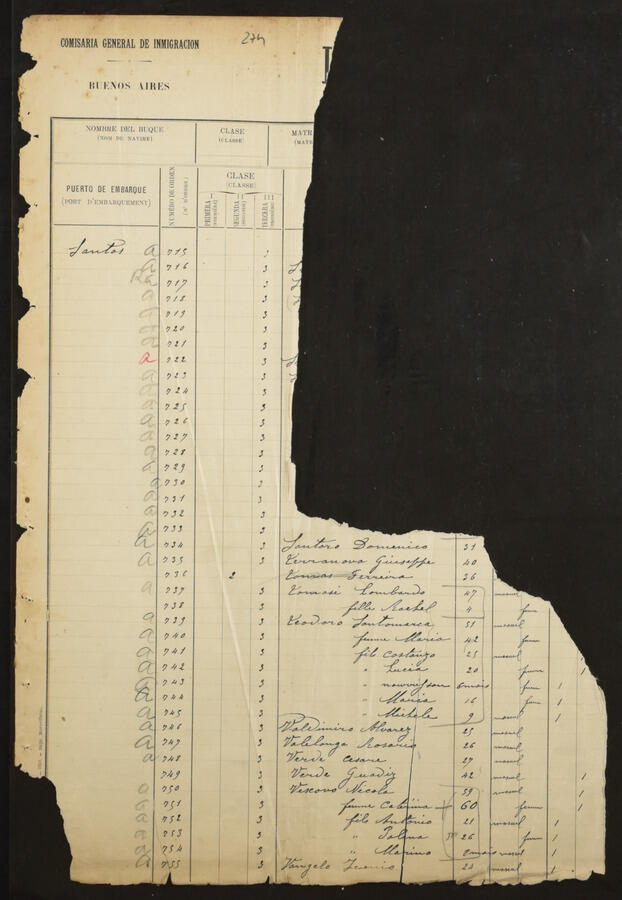 COMISARIA GENERAL DE INMIGRACION
274
BUENOS AIRES
NOMBRE DEL BUQUE
(NOM DU NAVIRE)
CLASE
(CLASSE)
MATR
(MATR
PUERTO DE EMBARQUE
(PORT D'EMBARQUEMENT)
NUMERO DE ORDEN
(N° D'ORDRE)
CLASE
(CLASSE)
I
PRIMERA
II
SEGUNDA
III
TERCERA
Santos a 715 3
716 3
717 3
718 3
719 3
720 3
721 3
a 722 3
723 3
724 3
725 3
726 3
727 3
728 3
729 3
730 3
731 3
732 3
733 3
734 3 Santoro Domenico 31
735 3 Terranova Giuseppe 40
736 2 Tomas Ferreira 26
737 3 Tomasi Lombardo 47
738 3 fille Rachel 4
739 3 Teodoro Santomarca 51
740 3 femme Maria 42
741 3 fils Costanzo 25
742 3 " Lucia 20 1
743 3 " nourrisson 6 mois 1
744 3 " Maria 16 1
745 3 " Michele 9 1
746 3 Valdimiro Alvarez 25
747 3 Vallelonga Rosario 26
748 3 Verde Cesare 27
749 3 Verde 42 1
750 3 Vescovo Nicola 59 1
751 3 femme Caterina 60 1
752 3 fils Antonio 21 1
753 3 " 26 1
754 3 " Marino 2 mois 1
755 3 Vangelo 1